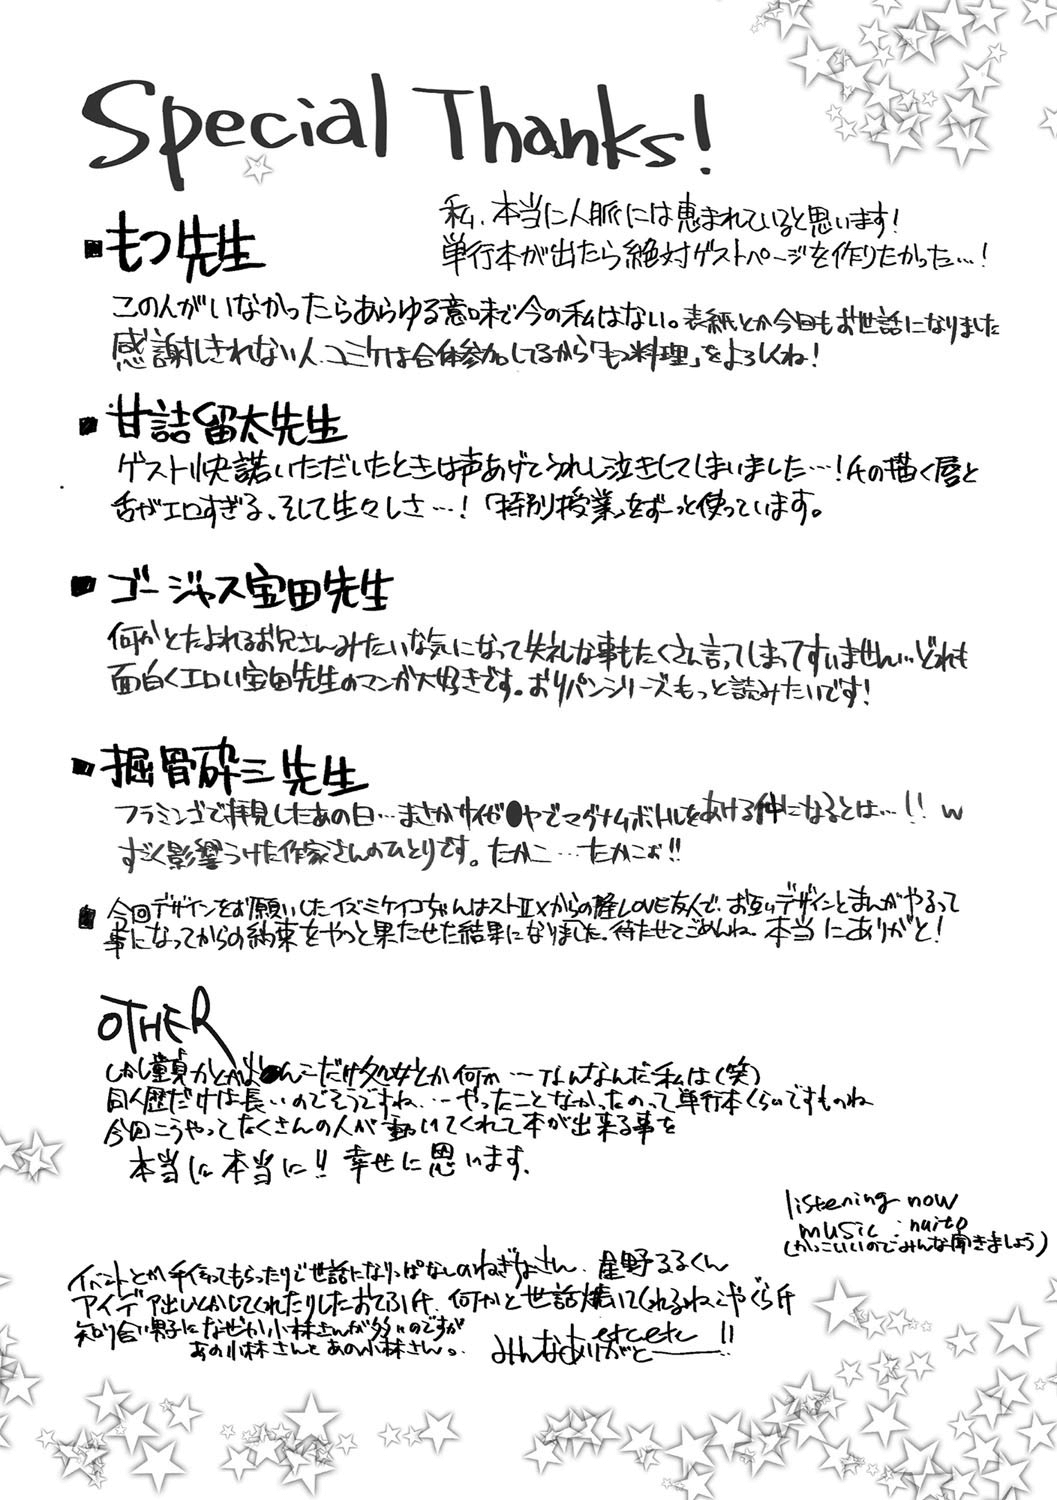 Special Thanks!
私、本当に人脈には恵まれていると思います!
単行本が出たら絶対ゲストページを作りたかった…!
■もつ先生
この人がいなかったらあらゆる意味で今の私はない。表紙とか今回もお世話になりました
感謝しきれない人。コミケは合体参加してるから「もつ料理」をよろしくね!
■甘詰留太先生
ゲスト快諾いただいたときは声あげてうれし泣きしてしまいました…!氏の描く唇と
舌がエロすぎる、そして生々しさ…!「特別授業」をずーっと使っています。
■ゴージャス宝田先生
何かとたよれるお兄さんみたいな気になって失礼な事もたくさん言ってしまってすいません…どれも
面白くエロい宝田先生のマンガ大好きです。おりパンシリーズもっと読みたいです!
■掘骨砕三先生
フラミンゴで拝見したあの日…まさかサイゼ●ヤでマグナムボトルをあける仲になるとは…!!w
すごく影響うけた作家さんのひとりです。たかこ…たかこぉ!!
■今回デザインをお願いしたイズミケイコちゃんはストⅡXからの隆LOVE友人で、お互いデザインとまんがやるって
事になってからの約束をやっと果たせた結果になりました。待たせてごめんね。本当にありがと!
OTHER
しかし童貞かとか●んこだけ処女とか何か…なんなんだ私は(笑)
同人歴だけは長いのでそうですね…やったことなかったのって単行本くらいですものね
今回こうやってたくさんの人が動いてくれて本が出来る事を
本当に本当に!!幸せに思います。
listening now
music : naito
(かっこいいのでみんな聞きましょう)
イベントとか手伝ってもらったりで世話になりっぱなしのねぎなさん、星野るるくん
アイデア出しとかしてくれたりしたおてふ氏、何かと世話焼いてくれるねこやぐら氏
知り合い男子になぜか小林さんが多いのですが
あの小林さんとあの小林さん。
etcetc
みんなありがと――!!